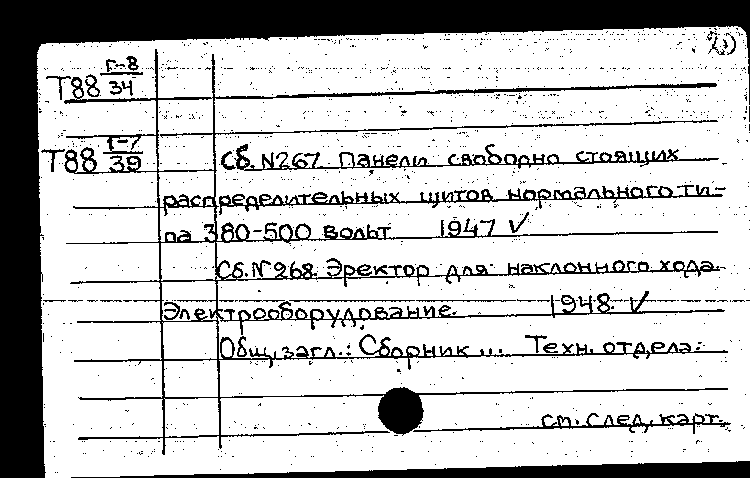 20
Т88 Г-8/34
Т88 Г-7/39 Сб. №267. Панели свободно стоящих
распределительных щитов нормального ти-
па 380-500 вольт 1947 √
Сб. № 268. Эректор для наклонного хода.
Электрооборудование. 1948. √
Общ. загл.: Сборник ... Техн. отдела.
см. след. карт.